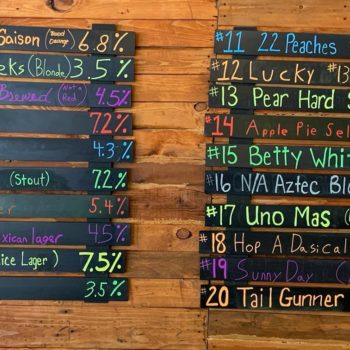 Saison (Blood Orange) 6.8%
eks (Blonde) 3.5%
Brewed (Not a Red) 4.5%
7.2%
4.3%
(Stout) 7.2%
er 5.4%
xican lager 4.5%
ice Lager) 7.5%
3.5%
#11 22 Peaches
#12 Lucky #13
#13 Pear Hard S
#14 Apple Pie Sel
#15 Betty Whit
#16 N/A Aztec Blo
#17 Uno Mas (
#18 Hop A Dasical
#19 Sunny Day (
#20 Tail Gunner